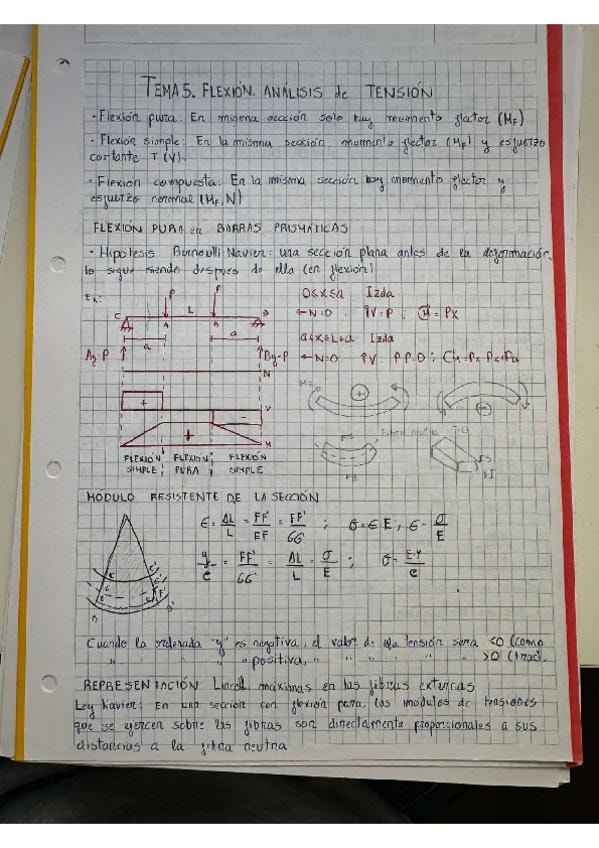 TEMA 5. FLEXIÓN. ANÁLISIS de TENSIÓN
- Flexión pura: En misma sección solo hay momento flector (MF)
- Flexión simple: En la misma sección momento flector (MF) y esfuerzo
cortante T (V).
- Flexión compuesta: En la misma sección hay momento flector y
esfuerzo normal (MF, N)
FLEXIÓN PURA en BARRAS PRISMÁTICAS
- Hipótesis Bernoulli Navier: una sección plana antes de la deformación,
lo sigue siendo despues de ella (en flexión)
Ex:
P P
C L D
A B
a a
Ay=P By=P
N
+ - V
+ M
FLEXIÓN SIMPLE FLEXIÓN PURA FLEXIÓN SIMPLE
0≤x≤a Izda
←N=0 ↑V=P ; M=Px
a≤x≤L+a Izda
←N=0 ↑V
+ -
Fibra neutra
MÓDULO RESISTENTE DE LA SECCIÓN
ε = ΔL/L = FF'/EF = FF'/GG' ; σ = ε E ; ε = σ/E
y/e = FF'/GG' = ΔL/L = σ/E ; σ = E·y/e
Cuando la ordenada "y" es negativa, el valor de la tensión sera <0 (comp
" " " " positiva, " " " " " >0 (tracc.
REPRESENTACIÓN Lineal máximas en las fibras externas
Ley Navier: En una sección con flexión pura, los modulos de tensiones
que se ejercen sobre las fibras son directamente proporcionales a sus
distancias a la fibra neutra